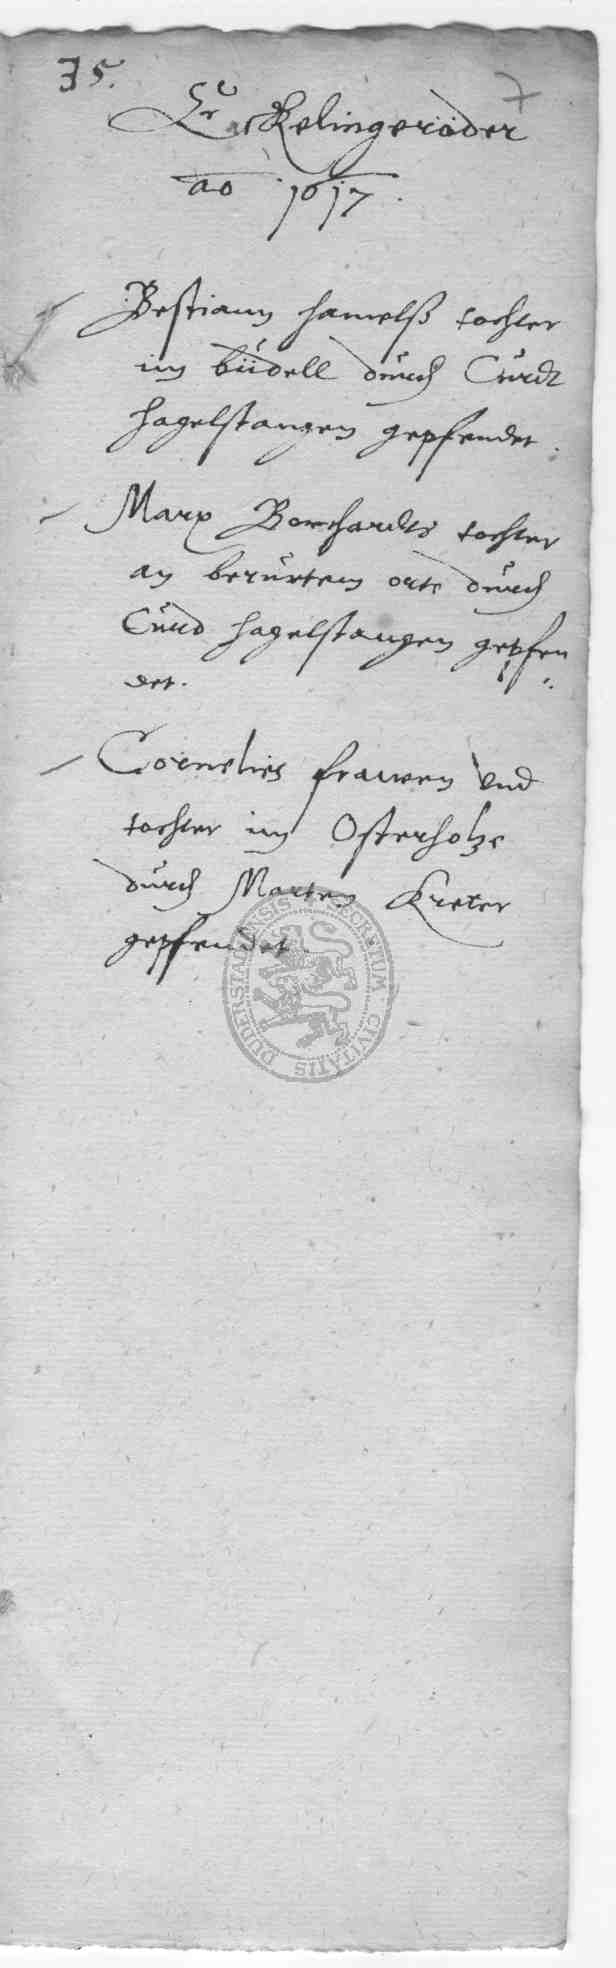 35.
7
Eckelingeröder
ao 1617.
Bestiann hamelß tochter
im büdell durch Curdt
hagelstangen gepfendet.
Marx Borchardts tochter
an berurtem orte durch
Curd hagelstangen gepfen
det.
Cornelies frawen und
tochter im Osterholze
durch Marten Kreter
gepfendet.
SECRETUM CIVITATIS DUDERSTADENSIS